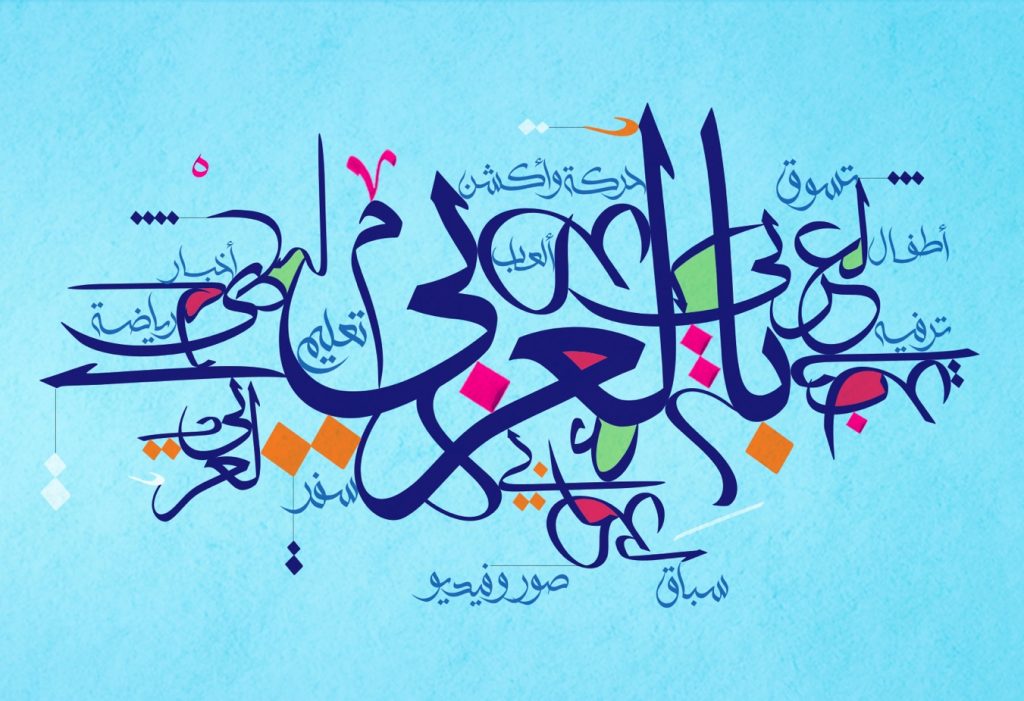 حركة وأكشن
تسوق
أطفال
ألعاب
أخبار
ترفيه
رياضة
تعليم
بالعربي
سفر
سباق
صور وفيديو